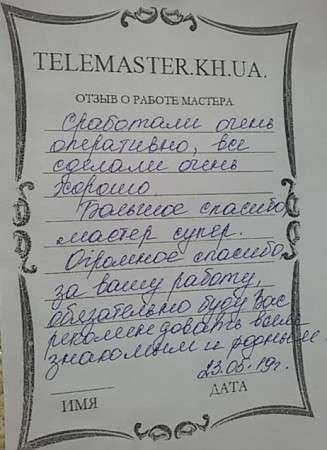 TELEMASTER.KH.UA.
ОТЗЫВ О РАБОТЕ МАСТЕРА
Сработали очень
оперативно, все
сделали очень
хорошо.
Большое спасибо,
мастер супер.
Огромное спасибо
за вашу работу,
обязательно буду Вас
рекомендовать всем
знакомым и родным.
23.05.19г.
ИМЯ ДАТА